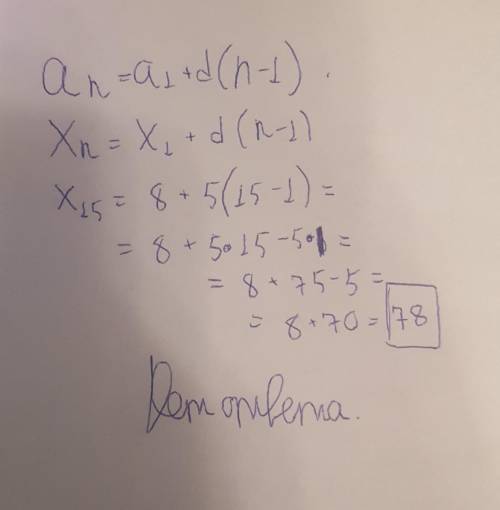 aₙ = a₁ + d(n-1).
Xₙ = X₁ + d(n-1)
X₁₅ = 8 + 5(15-1) =
= 8 + 5·15 - 5·1 =
= 8 + 75 - 5 =
= 8 + 70 = 78
Нет ответа.